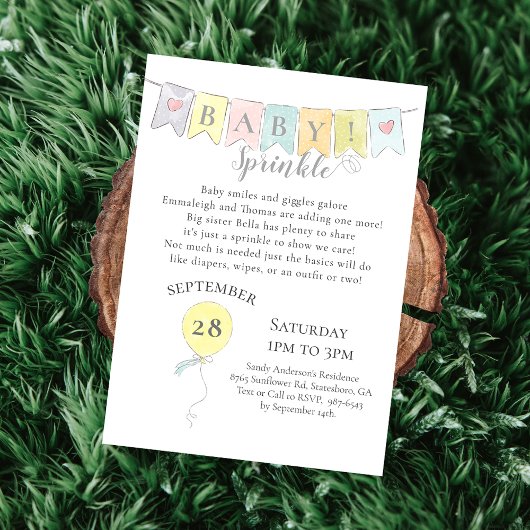 BABY!
Sprinkle
Baby smiles and giggles galore
Emmaleigh and Thomas are adding one more!
Big sister Bella has plenty to share
it's just a sprinkle to show we care!
Not much is needed just the basics will do
like diapers, wipes, or an outfit or two!
SEPTEMBER
28
Saturday
1PM to 3PM
Sandy Anderson's Residence
8765 Sunflower Rd, Statesboro, GA
Text or Call to RSVP, 987-6543
by September 14th.